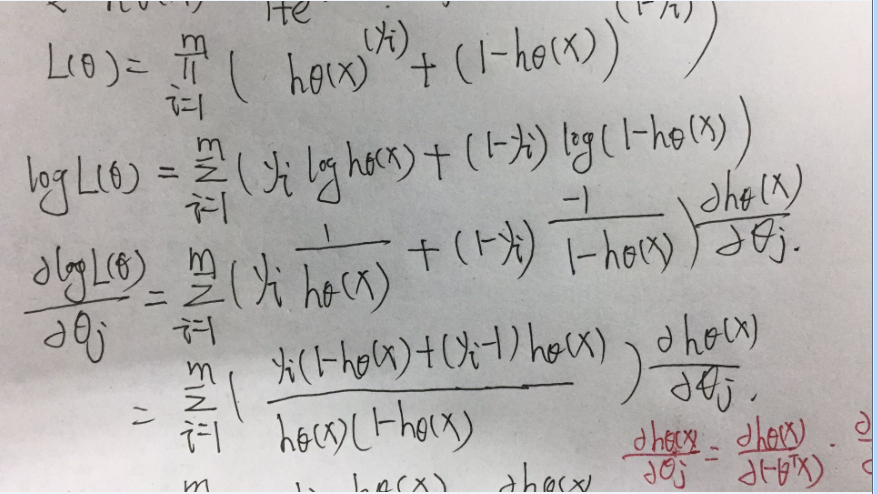 L(θ) = ∏_{i=1}^{m} ( hθ(x)^{(yi)} + (1-hθ(x))^{(1-yi)} )
log L(θ) = ∑_{i=1}^{m} ( yi log hθ(x) + (1-yi) log(1-hθ(x) )
∂log L(θ)/∂θj = ∑_{i=1}^{m} ( yi 1/hθ(x) + (1-yi) -1/(1-hθ(x)) ) ∂hθ(x)/∂θj.
= ∑_{i=1}^{m} ( yi(1-hθ(x)+(yi-1)hθ(x) / hθ(x)(1-hθ(x) ) ∂hθ(x)/∂θj.
∂hθ(x)/∂θj = ∂hθ(x)/∂(-θᵀx) ·